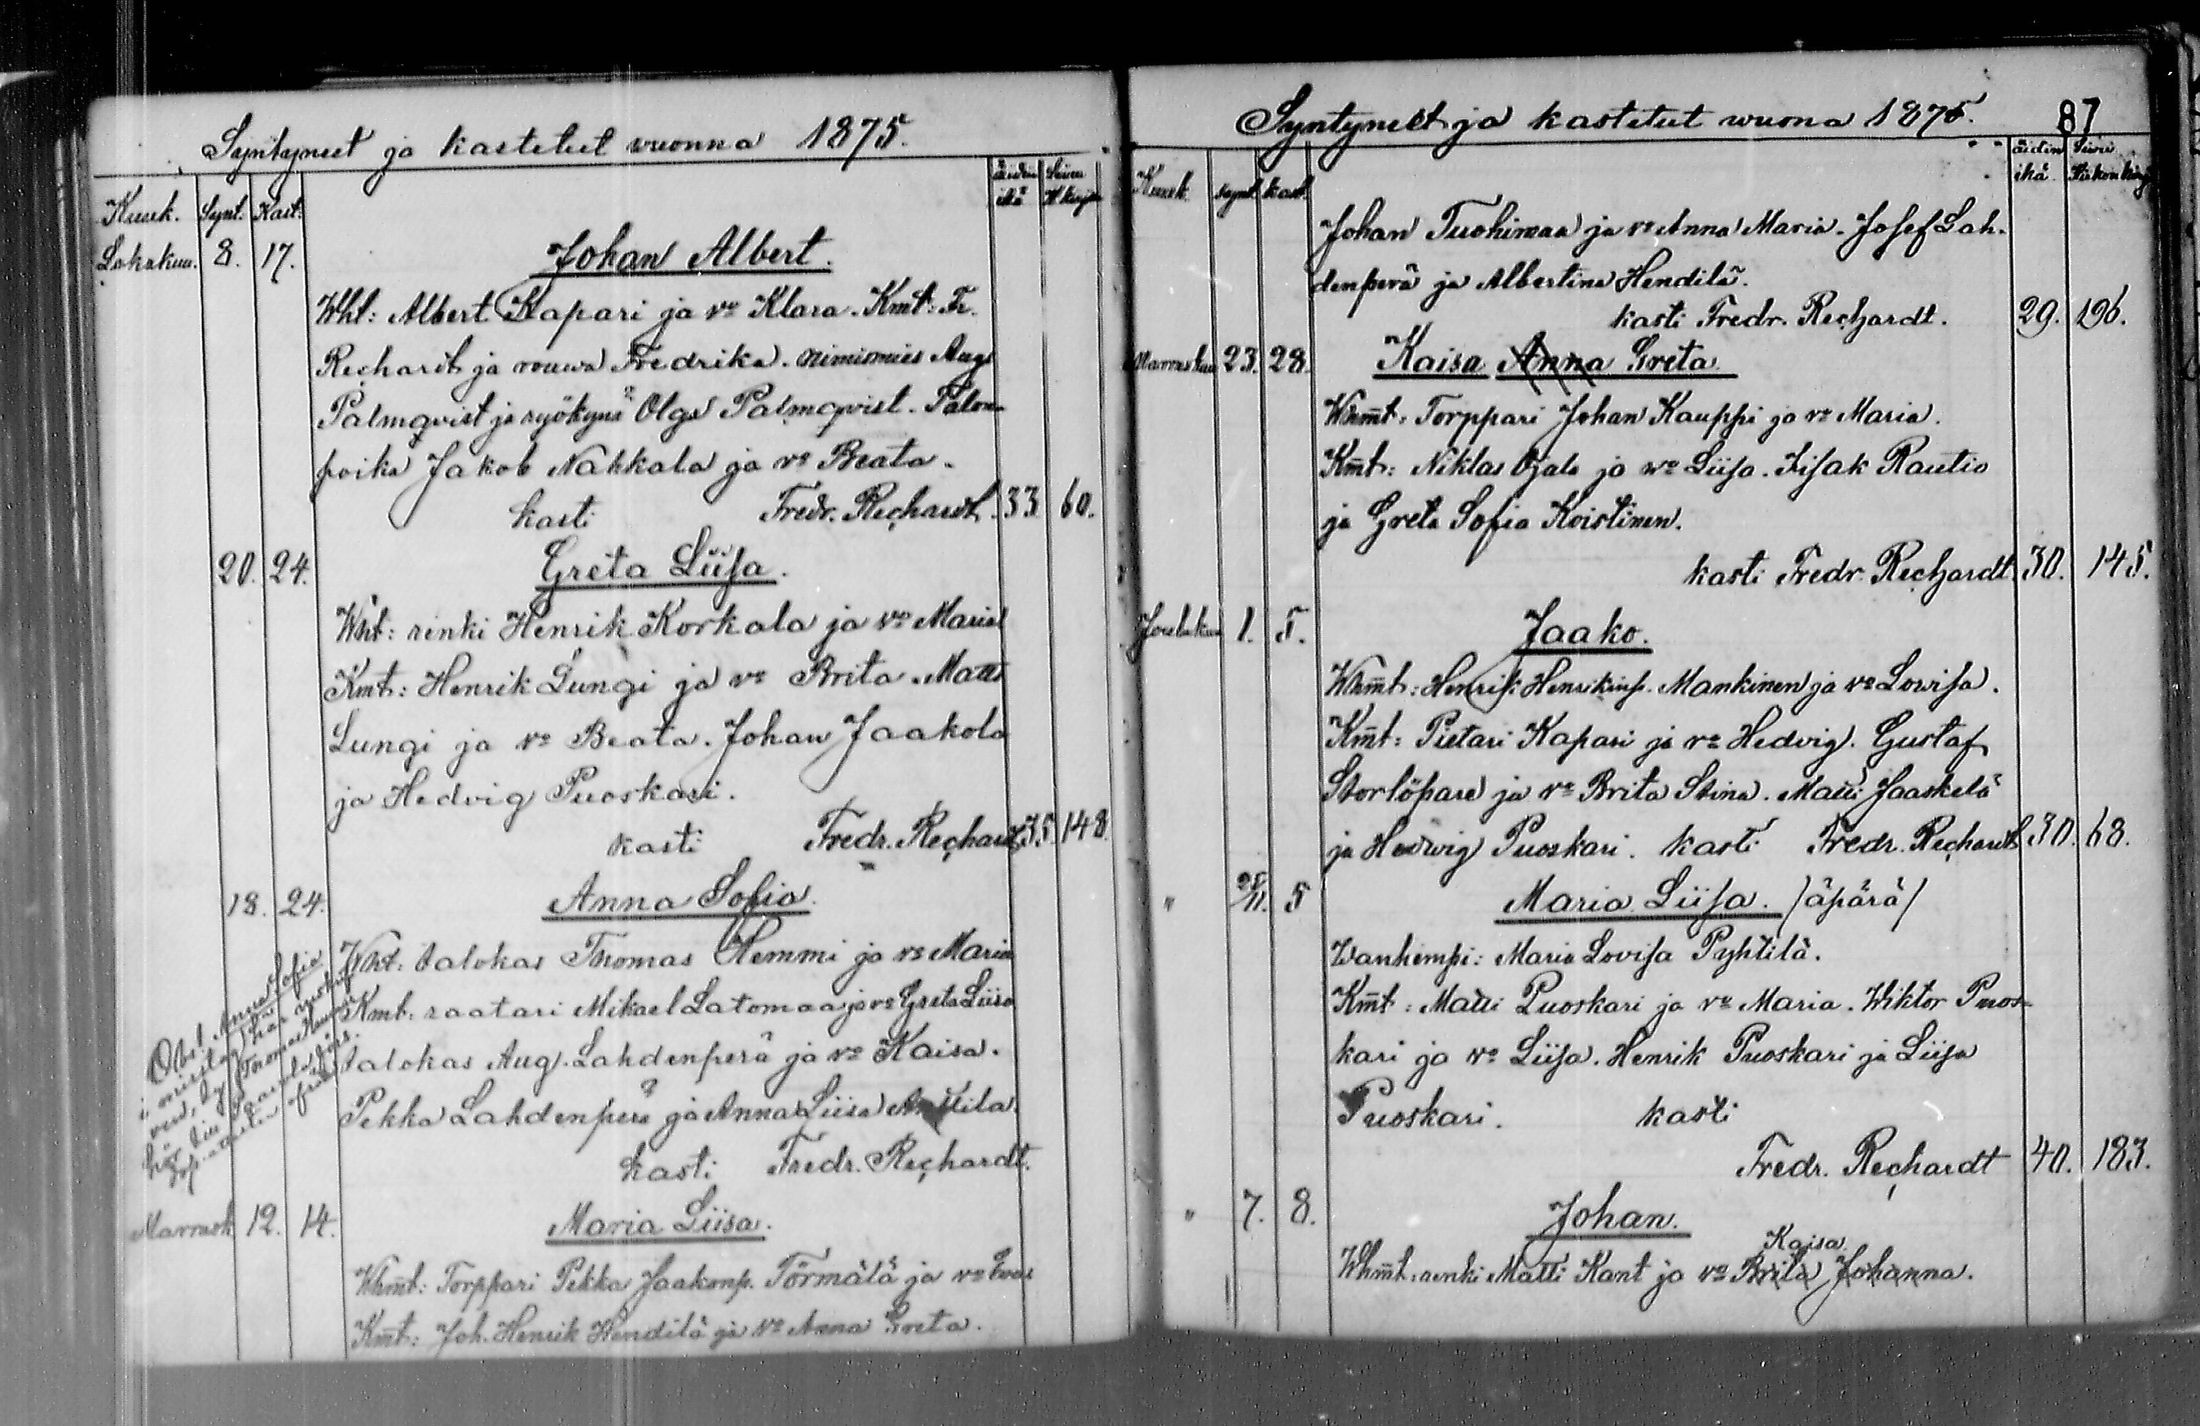 Syntyneet ja kastetut vuonna 1875.
Kuuk. Synt. Kast. äidin ikä Siwu
Lokakuu. 8. 17. Johan Albert.
Wht: Albert Kapari ja vo Klara. Kmt: Fr.
Rechardt ja rouwa Fredrika. nimismies Aug
Palmqvist ja ryökynä Olga Palmqvist. Talon-
poika Jakob Nahkala ja vo Beata.
kasti Fredr. Rechardt. 33 60.
20. 24. Greta Liisa.
Wht: renki Henrik Korkala ja vo Maria
Kmt: Henrik Lungi ja vo Brita. Matts
Lungi ja vo Beata. Johan Jaakola
ja Hedvig Puoskari.
kasti Fredr. Rechardt 35. 148
18. 24. Anna Sofia.
Wht: talokas Thomas Hemmi ja vo Maria
Kmt. raatari Mikael Latomaa ja vo Greta Liisa
talokas Aug. Lahdenperä ja vo Kaisa.
Pekka Lahdenperä ja Anna Liisa Anttila.
kasti Fredr. Rechardt.
Obs! Anna Sofia
Marrask 12. 14. Maria Liisa.
Whmt: Torppari Pekka Jaakonp. Törmälä ja vo Eva
Kmt: Joh. Henrik Hendilä ja vo Anna Greta.
Syntyneet ja kastetut wuona 1875. 87
Kuuk synt. kast. äidin ikä Siwu
Johan Tuohimaa ja vo Anna Maria. Josef Lah-
denperä ja Albertina Hendilä.
kasti Fredr. Rechardt. 29. 196.
Marraskuu 23. 28. Kaisa Anna Greta
Whmt: Torppari Johan Kauppi ja vo Maria.
Kmt: Niklas Ojala ja wo Liisa. Iisak Rautio
ja Greta Sofia Koistinen.
kasti Fredr. Rechardt 30. 145.
Joulukuu 1. 5. Jaako.
Whmt: Henrik Henrikinp. Mankinen ja vo Lowisa.
Kmt: Pietari Kapari ja vo Hedvig. Gustaf
Storlöpare ja vo Brita Stina. Matti Jaaskelä
ja Hedwig Puoskari. kasti Fredr. Rechardt 30. 68.
" 25/11. 5 Maria Liisa. /äpärä/
Wanhempi: Maria Lovisa Pyhtilä.
Kmt: Matti Puoskari ja vo Maria. Wiktor Puos-
kari ja vo Liisa. Henrik Puoskari ja Liisa
Puoskari. kasti
Fredr. Rechardt 40. 183.
" 7. 8. Johan.
Kaisa
Whmt: renki Matti Kant ja vo Brita Johanna.